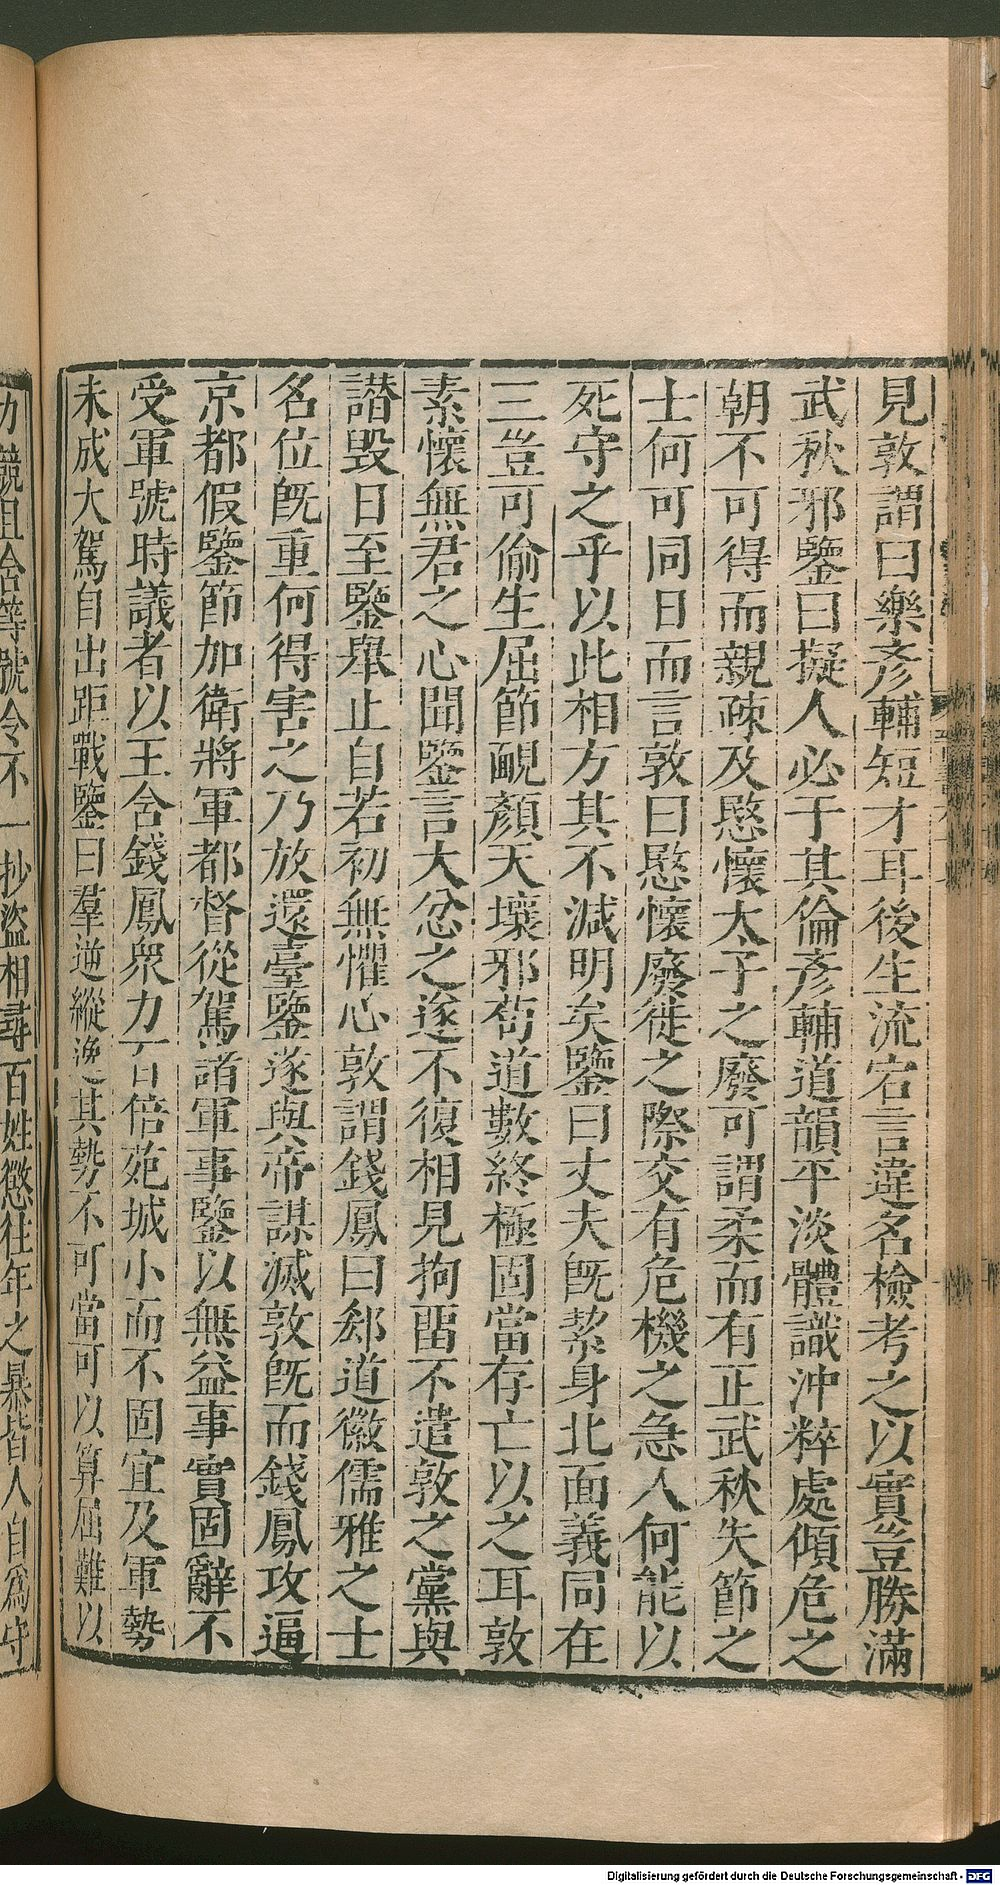 見敦謂曰樂彥輔短才耳後生流宕言違名檢考之以實豈勝滿
武秋邪鑒曰擬人必于其倫彥輔道韻平淡體識沖粹處傾危之
朝不可得而親疎及愍懷太子之廢可謂柔而有正武秋失節之
士何可同日而言敦曰愍懷廢徙之際交有危機之急人何能以
死守之乎以此相方其不減明矣鑒曰丈夫旣絜身北面義同在
三豈可偷生屈節靦顏天壤邪苟道數終極固當存亡以之耳敦
素懷無君之心聞鑒言大忿之遂不復相見拘畱不遣敦之黨與
譖毀日至鑒舉止自若初無懼心敦謂錢鳳曰郄道徽儒雅之士
名位旣重何得害之乃放還臺鑒遂與帝謀滅敦旣而錢鳳攻逼
京都假鑒節加衛將軍都督從駕諸軍事鑒以無益事實固辭不
受軍號時議者以王含錢鳳衆力百倍苑城小而不固宜及軍勢
未成大駕自出距戰鑒曰羣逆縱逸其勢不可當可以算屈難以
力競且含等號令不一抄盜相尋百姓懲往年之暴皆人自爲守
Digitalisierung gefördert durch die Deutsche Forschungsgemeinschaft - DFG